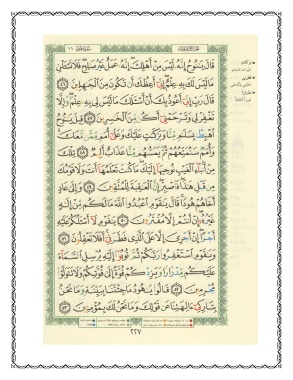 قَالَ يَٰنُوحُ إِنَّهُۥ لَيْسَ مِنْ أَهْلِكَ إِنَّهُۥ عَمَلٌ غَيْرُ صَٰلِحٍ فَلَا تَسْـَٔلْنِ
مَا لَيْسَ لَكَ بِهِۦ عِلْمٌ إِنِّىٓ أَعِظُكَ أَن تَكُونَ مِنَ ٱلْجَٰهِلِينَ ٤٦
قَالَ رَبِّ إِنِّىٓ أَعُوذُ بِكَ أَنْ أَسْـَٔلَكَ مَا لَيْسَ لِى بِهِۦ عِلْمٌ وَإِلَّا
تَغْفِرْ لِى وَتَرْحَمْنِىٓ أَكُن مِّنَ ٱلْخَٰسِرِينَ ٤٧ قِيلَ يَٰنُوحُ
ٱهْبِطْ بِسَلَٰمٍ مِّنَّا وَبَرَكَٰتٍ عَلَيْكَ وَعَلَىٰٓ أُمَمٍ مِّمَّن مَّعَكَ
وَأُمَمٌ سَنُمَتِّعُهُمْ ثُمَّ يَمَسُّهُم مِّنَّا عَذَابٌ أَلِيمٌ ٤٨ تِلْكَ
مِنْ أَنۢبَآءِ ٱلْغَيْبِ نُوحِيهَآ إِلَيْكَ مَا كُنتَ تَعْلَمُهَآ أَنتَ وَلَا قَوْمُكَ
مِن قَبْلِ هَٰذَا فَٱصْبِرْ إِنَّ ٱلْعَٰقِبَةَ لِلْمُتَّقِينَ ٤٩ وَإِلَىٰ عَادٍ
أَخَاهُمْ هُودًا قَالَ يَٰقَوْمِ ٱعْبُدُوا۟ ٱللَّهَ مَا لَكُم مِّنْ إِلَٰهٍ
غَيْرُهُۥٓ إِنْ أَنتُمْ إِلَّا مُفْتَرُونَ ٥٠ يَٰقَوْمِ لَآ أَسْـَٔلُكُمْ عَلَيْهِ
أَجْرًا إِنْ أَجْرِىَ إِلَّا عَلَى ٱلَّذِى فَطَرَنِىٓ أَفَلَا تَعْقِلُونَ ٥١
وَيَٰقَوْمِ ٱسْتَغْفِرُوا۟ رَبَّكُمْ ثُمَّ تُوبُوٓا۟ إِلَيْهِ يُرْسِلِ ٱلسَّمَآءَ
عَلَيْكُم مِّدْرَارًا وَيَزِدْكُمْ قُوَّةً إِلَىٰ قُوَّتِكُمْ وَلَا تَتَوَلَّوْا۟
مُجْرِمِينَ ٥٢ قَالُوا۟ يَٰهُودُ مَا جِئْتَنَا بِبَيِّنَةٍ وَمَا نَحْنُ
بِتَارِكِىٓ ءَالِهَتِنَا عَن قَوْلِكَ وَمَا نَحْنُ لَكَ بِمُؤْمِنِينَ ٥٣
٢٢٧